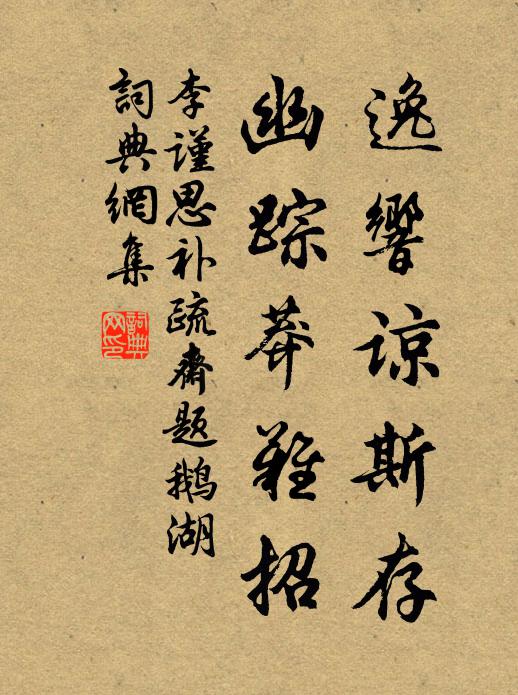 逸響谅斯存
幽踪莽難招
李謹思补疏齋題鹅湖
詞典網集
詞典网印